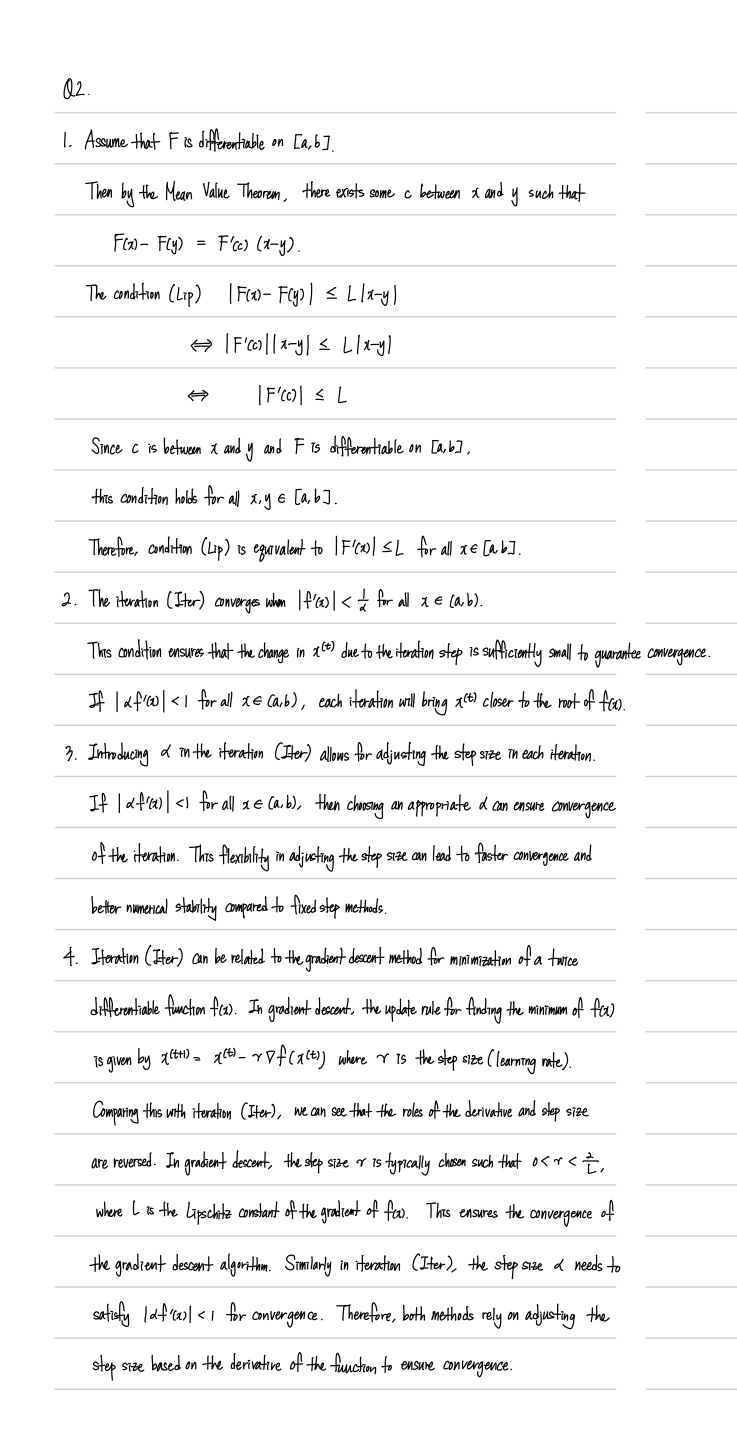 Q2.
1. Assume that F is differentiable on [a,b].
Then by the Mean Value Theorem, there exists some c between x and y such that
F(x) - F(y) = F'(c) (x-y).
The condition (Lip) |F(x) - F(y)| ≤ L|x-y|
⇔ |F'(c)||x-y| ≤ L|x-y|
⇔ |F'(c)| ≤ L
Since c is between x and y and F is differentiable on [a,b],
this condition holds for all x,y ∈ [a,b].
Therefore, condition (Lip) is equivalent to |F'(x)| ≤ L for all x ∈ [a,b].
2. The iteration (Iter) converges when |f'(x)| < 1/α for all x ∈ (a,b).
This condition ensures that the change in x^(t) due to the iteration step is sufficiently small to guarantee convergence.
If |αf'(x)| < 1 for all x ∈ (a,b), each iteration will bring x^(t) closer to the root of f(x).
3. Introducing α in the iteration (Iter) allows for adjusting the step size in each iteration.
If |αf'(x)| < 1 for all x ∈ (a,b), then choosing an appropriate α can ensure convergence
of the iteration. This flexibility in adjusting the step size can lead to faster convergence and
better numerical stability compared to fixed step methods.
4. Iteration (Iter) can be related to the gradient descent method for minimization of a twice
differentiable function f(x). In gradient descent, the update rule for finding the minimum of f(x)
is given by x^(t+1) = x^(t) - r∇f(x^(t)) where r is the step size (learning rate).
Comparing this with iteration (Iter), we can see that the roles of the derivative and step size
are reversed. In gradient descent, the step size r is typically chosen such that 0 < r < 2/L,
where L is the Lipschitz constant of the gradient of f(x). This ensures the convergence of
the gradient descent algorithm. Similarly in iteration (Iter), the step size α needs to
satisfy |αf'(x)| < 1 for convergence. Therefore, both methods rely on adjusting the
step size based on the derivative of the function to ensure convergence.